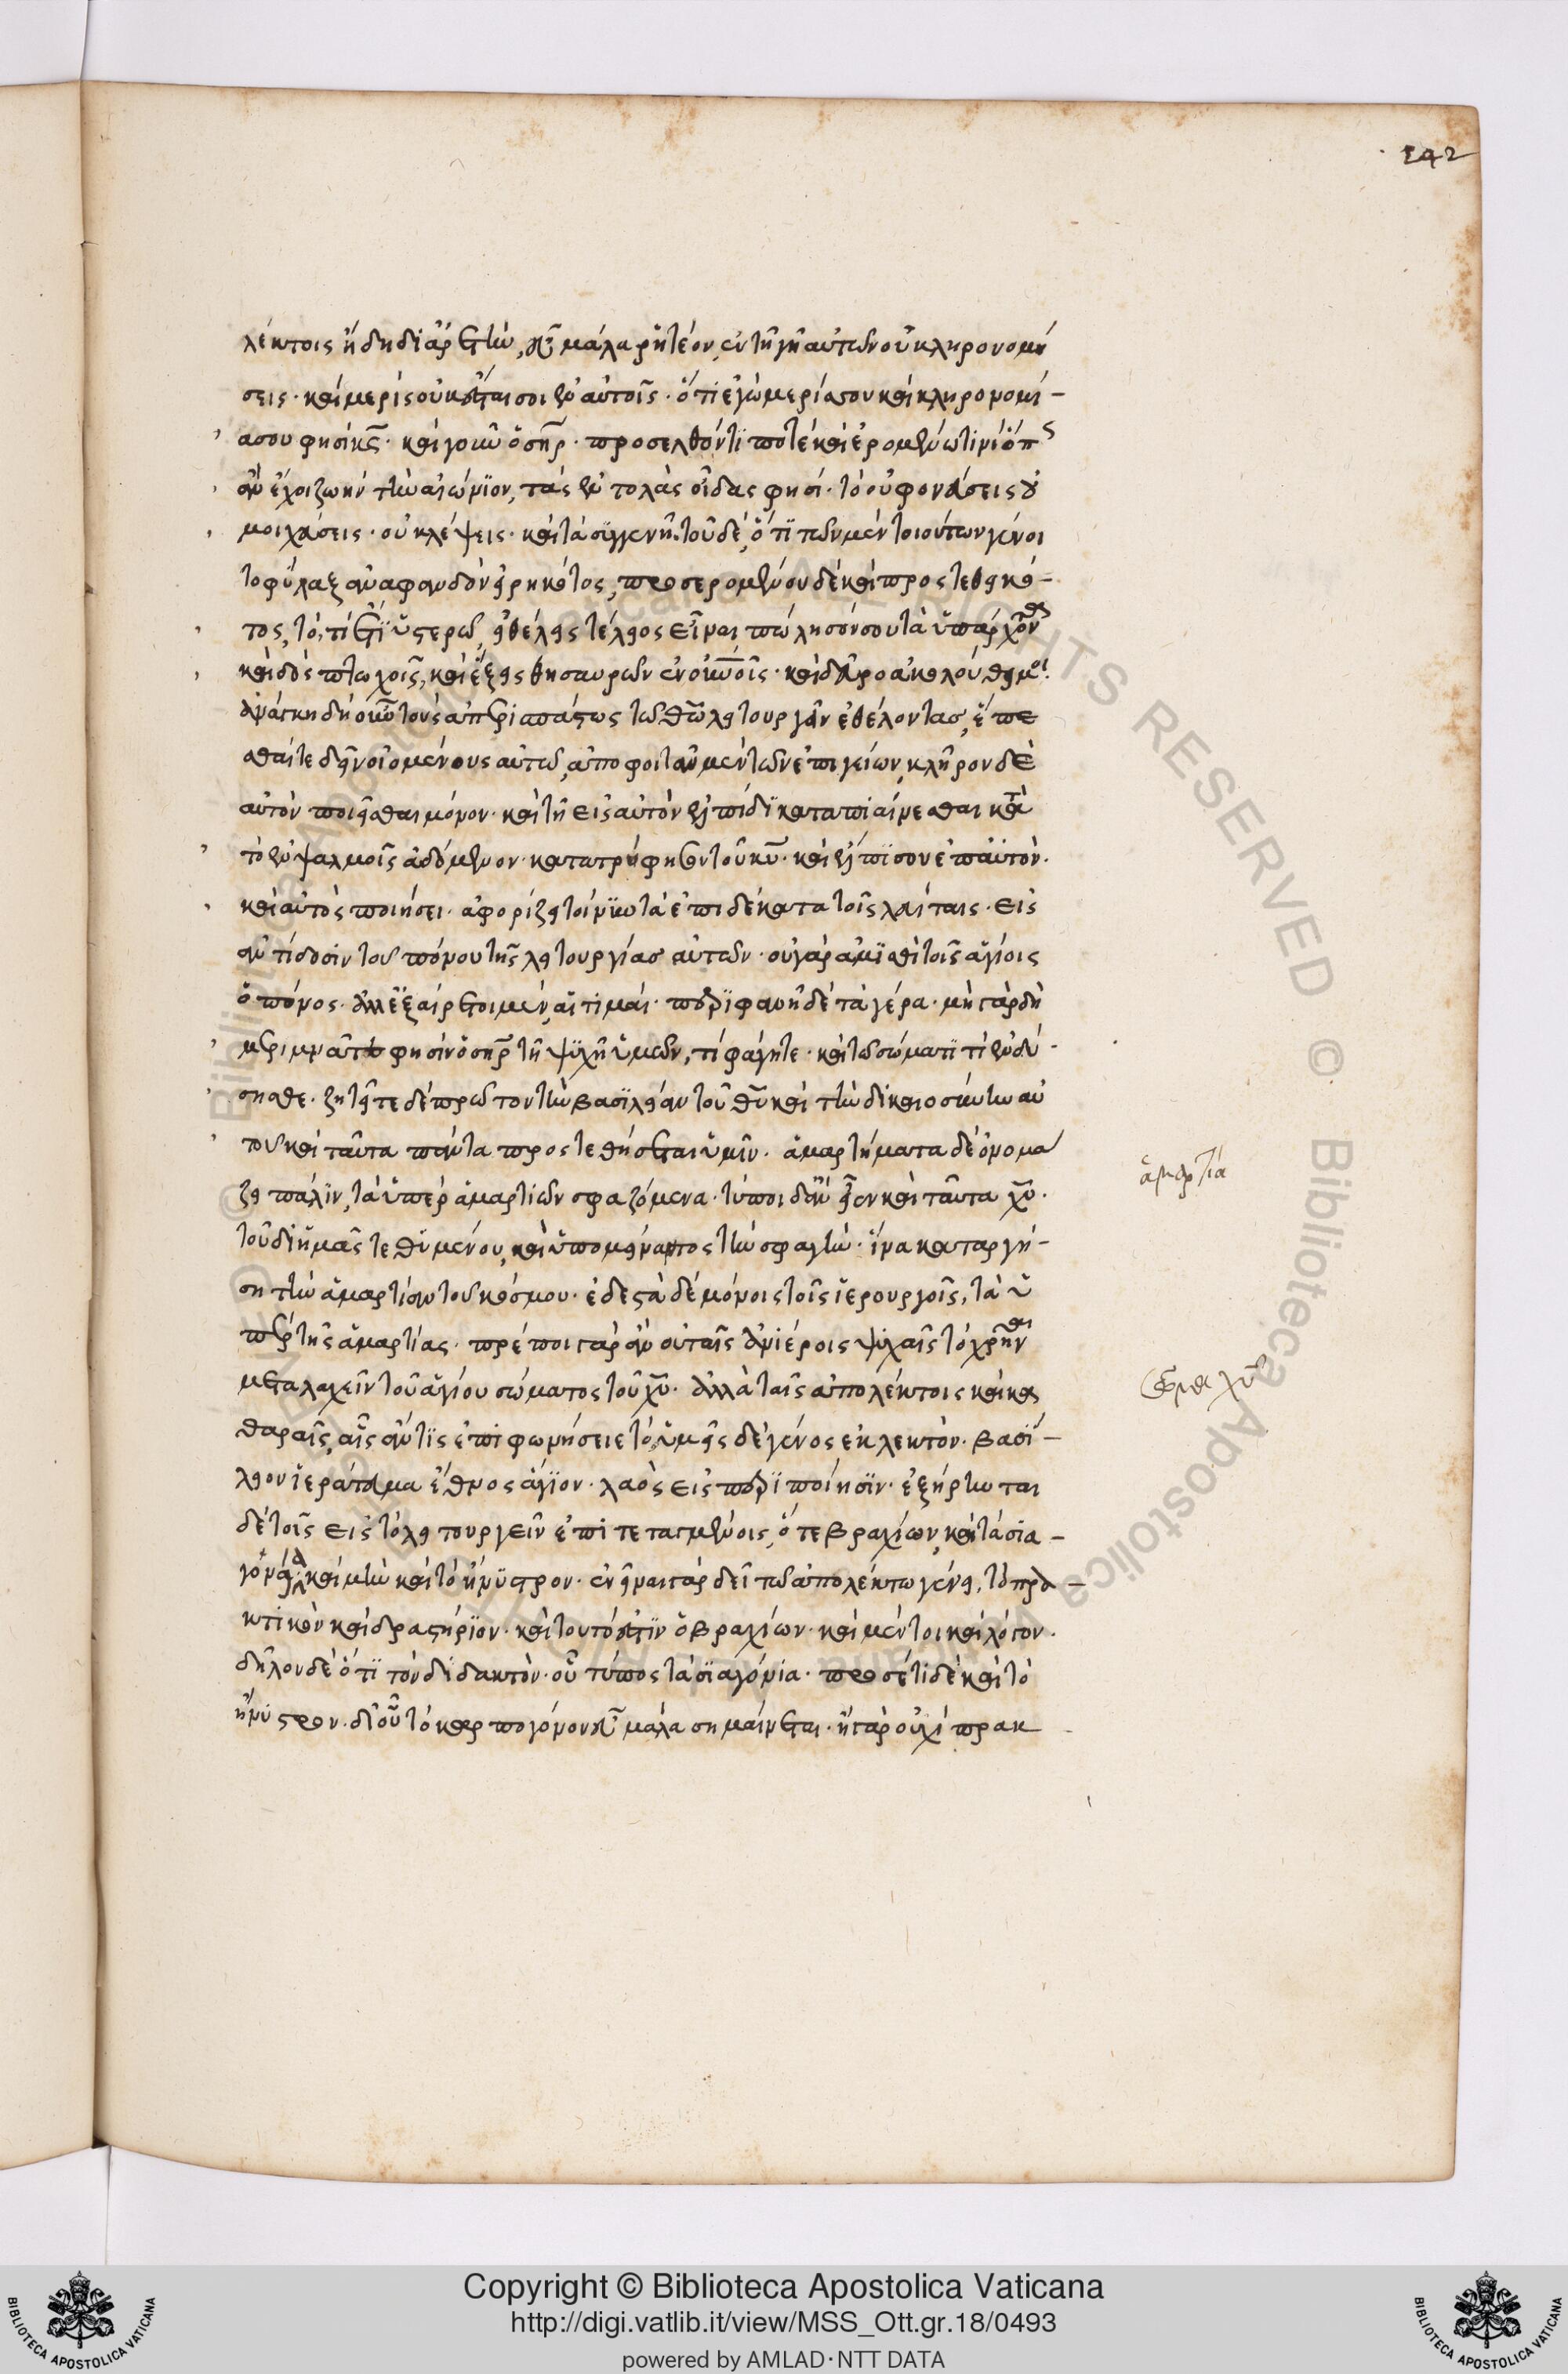 242
λέκτοις ἤδη δι' ἀρετὴν, καὶ μάλα ῥητέον, ἐν τῇ γῇ αὐτῶν οὐ κληρονομή
σεις· καὶ μερὶς οὐκ ἔσται σοι ἐν αὐτοῖς· ὅτι ἐγὼ μερίς σου καὶ κληρονομί-
α σου φησὶ κς· καὶ γοῦν ὁ σηρ· προσελθόντι ποτὲ καὶ ἐρομένω τινὶ ὅπς
ἂν ἔχοι ζωὴν τὴν αἰώνιον, τὰς ἐντολὰς οἶδας φησί· τὸ οὐ φονεύσεις οὐ
μοιχεύσεις· οὐ κλέψεις· καὶ τὰ συγγενῆ· τοῦ δέ, ὅτι τῶν μὲν τοιούτων γένοι
το φύλαξ ἀναφανδὸν εἰρηκότος, προσερομένου δὲ καὶ προστεθεικό-
τος, τὸ, τί ἔτι ὑστερῶ, εἰ θέλεις τέλειος εἶναι πώλησόν σου τὰ ὑπάρχοντα
καὶ δὸς πτωχοῖς, καὶ ἕξεις θησαυρὸν ἐν οὐνοῖς· καὶ δεῦρο ἀκολούθει μοι·
ἀνάγκη δὴ οὖν τοὺς ἀπερισπάστως τῶ θῶ λειτουργεῖν ἐθέλοντας, ἕπε
σθαί τε δεῖν οἰομένους αὐτῶ, ἀποφοιτᾶν μὲν τῶν ἐπιγείων, κλῆρον δὲ
αὐτὸν ποιεῖσθαι μόνον· καὶ τῇ εἰς αὐτὸν ἐλπίδι καταπιαίνεσθαι κατὰ
τὸ ἐν ψαλμοῖς ἀδόμενον· κατατρύφησον τοῦ κυ· καὶ ἔλπισον ἐπ' αὐτόν·
καὶ αὐτὸς ποιήσει· ἀφορίζει τοίνυν τὰ ἐπιδέκατα τοῖς λευίταις· εἰς
ἀντίδοσιν τοῦ πόνου τῆς λειτουργίας αὐτῶν· οὐ γὰρ ἀμισθὶ τοῖς ἁγίοις
ὁ πόνος· ἀλλ' ἐξαίρετοι μὲν, αἱ τιμαί· περιφανῆ δὲ τὰ γέρα· μὴ γὰρ δὴ
μεριμνᾶτε φησὶν ὁ σηρ τῇ ψυχῇ ὑμῶν, τί φάγητε· καὶ τῶ σώματι τί ἐνδύ-
σησθε· ζητεῖτε δὲ πρῶτον τὴν βασιλείαν τοῦ θυ καὶ τὴν δικαιοσύνην αὐ
τοῦ καὶ ταῦτα πάντα προστεθήσεται ὑμῖν· ἁμαρτήματα δὲ ὀνομά
ζει πάλιν, τὰ ὑπὲρ ἁμαρτιῶν σφαζόμενα· τύποι δ' ἂν εἶεν καὶ ταῦτα χυ·
ἁμαρτία
τοῦ δι' ἡμᾶς τεθυμένου, καὶ ὑπομείναντος τὴν σφαγὴν· ἵνα καταργή-
ση τὴν ἁμαρτίαν τοῦ κόσμου· ἐδεστὰ δὲ μόνοις τοῖς ἱερουργοῖς, τὰ ὑ
πὲρ τῆς ἁμαρτίας· πρέποι γὰρ ἂν οὐ ταῖς ἀνιέροις ψυχαῖς τὸ χρῆναι
μεταλαχεῖν τοῦ ἁγίου σώματος τοῦ χυ· ἀλλὰ ταῖς ἀπολέκτοις καὶ κα
σῶμα χυ
θαραῖς, αἷς ἄν τις ἐπιφωνήσειε τὸ, ὑμεῖς δὲ γένος ἐκλεκτὸν· βασί-
λειον ἱεράτευμα ἔθνος ἅγιον· λαὸς εἰς περιποίησιν· ἐξήρηται
δὲ τοῖς εἰς τὸ λειτουργεῖν ἐπιτεταγμένοις, ὅ τε βραχίων, καὶ τὰ σια-
γόνια καὶ μὴν καὶ τὸ ἤνυστρον· ἐνεῖναι γὰρ δεῖ τῶ ἀπολέκτω γένει, τὸ πρα-
κτικὸν καὶ δραστήριον· καὶ τοῦτό ἐστιν ὁ βραχίων· καὶ μέντοι καὶ λόγον·
δῆλον δὲ ὅτι τὸν διδακτὸν· οὗ τύπος τὰ σιαγόνια· προσέτι δὲ καὶ τὸ
ἤνυστρον· δι' οὗ τὸ καρπογόνον εὖ μάλα σημαίνεται· ἦ γὰρ οὐχὶ πρακ
Copyright © Biblioteca Apostolica Vaticana
http://digi.vatlib.it/view/MSS_Ott.gr.18/0493
powered by AMLAD·NTT DATA